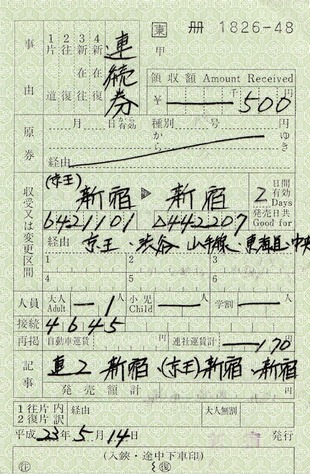 東 冊 1826-48
甲
事由
1片道
2往復
3新在往
4新在復
連続券
領収額 Amount Received
¥ 千 500 円
原券
月 日 から有効
種別 号 円
から ゆき
経由
収受又は変更区間
(京王) 新宿 ▶ 新宿
2 日間有効 Days
6421101 △442207
発売日共 Good for
経由 京王・渋谷 山手線・東海道・中央
1 2 3
4 5 6
人員
大人 Adult 1人
小児 Child 人
学割 人
接続 4645
再掲 自動車運賃 円
連社運賃計 170 円
記事
連2 新宿 (京王)新宿〜新宿
発売額計 円
1往片内
2復片訳
経由
大人無割
円
平成 23年 5月 14日
発行
(入鋏・途中下車印)